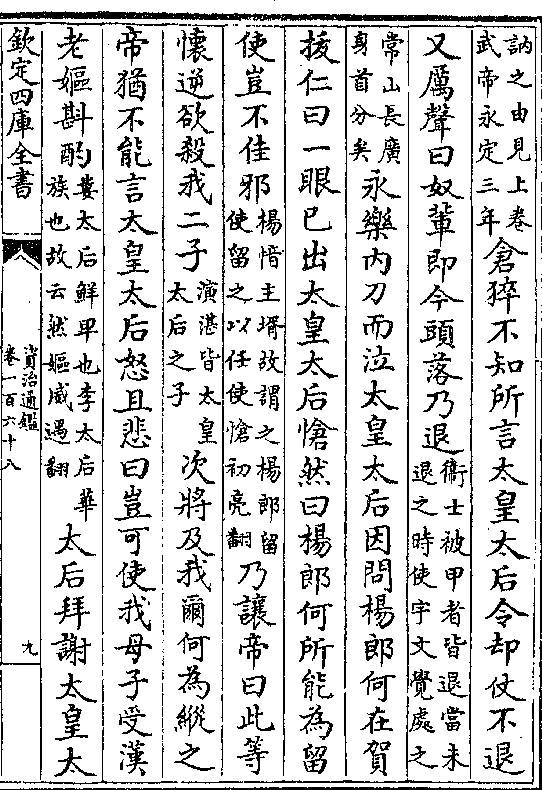 訥之由見上卷
武帝永定三年
倉猝不知所言太皇太后令却仗不退
又厲聲曰奴輩即今頭落乃退
衞士被甲者皆退當未
退之時使宇文覺處之
常山長廣
身首分矣
永樂内刀而泣太皇太后因問楊郎何在賀
拔仁曰一眼已出太皇太后愴然曰楊郎何所能為留
使豈不佳邪
楊愔主壻故謂之楊郎留
使留之以任使愴初亮翻
乃讓帝曰此等
懷逆欲殺我二子
演湛皆太皇
太后之子
次將及我爾何為縱之
帝猶不能言太皇太后怒且悲曰豈可使我母子受漢
老嫗斟酌
婁太后鮮卑也李太后華
族也故云然嫗威遇翻
太后拜謝太皇太
欽定四庫全書
資治通鑑
卷一百六十八
九